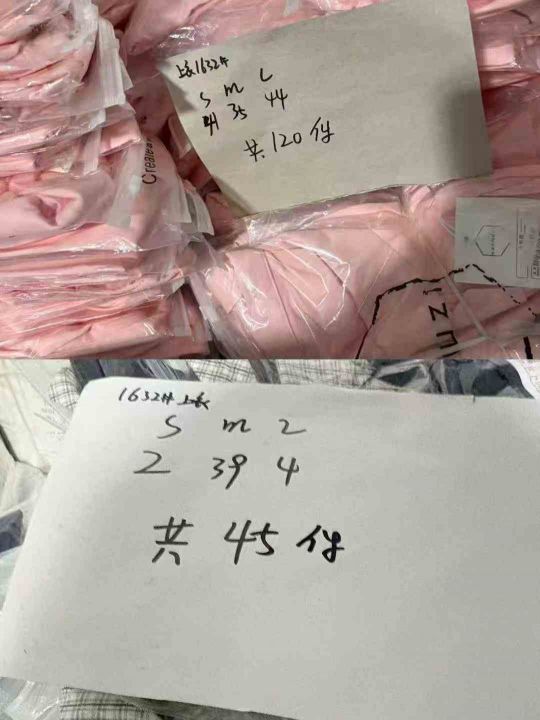 上衣1632#
S m L
41 35 44
共120件
1632#上衣
S m L
2 39 4
共 45 件